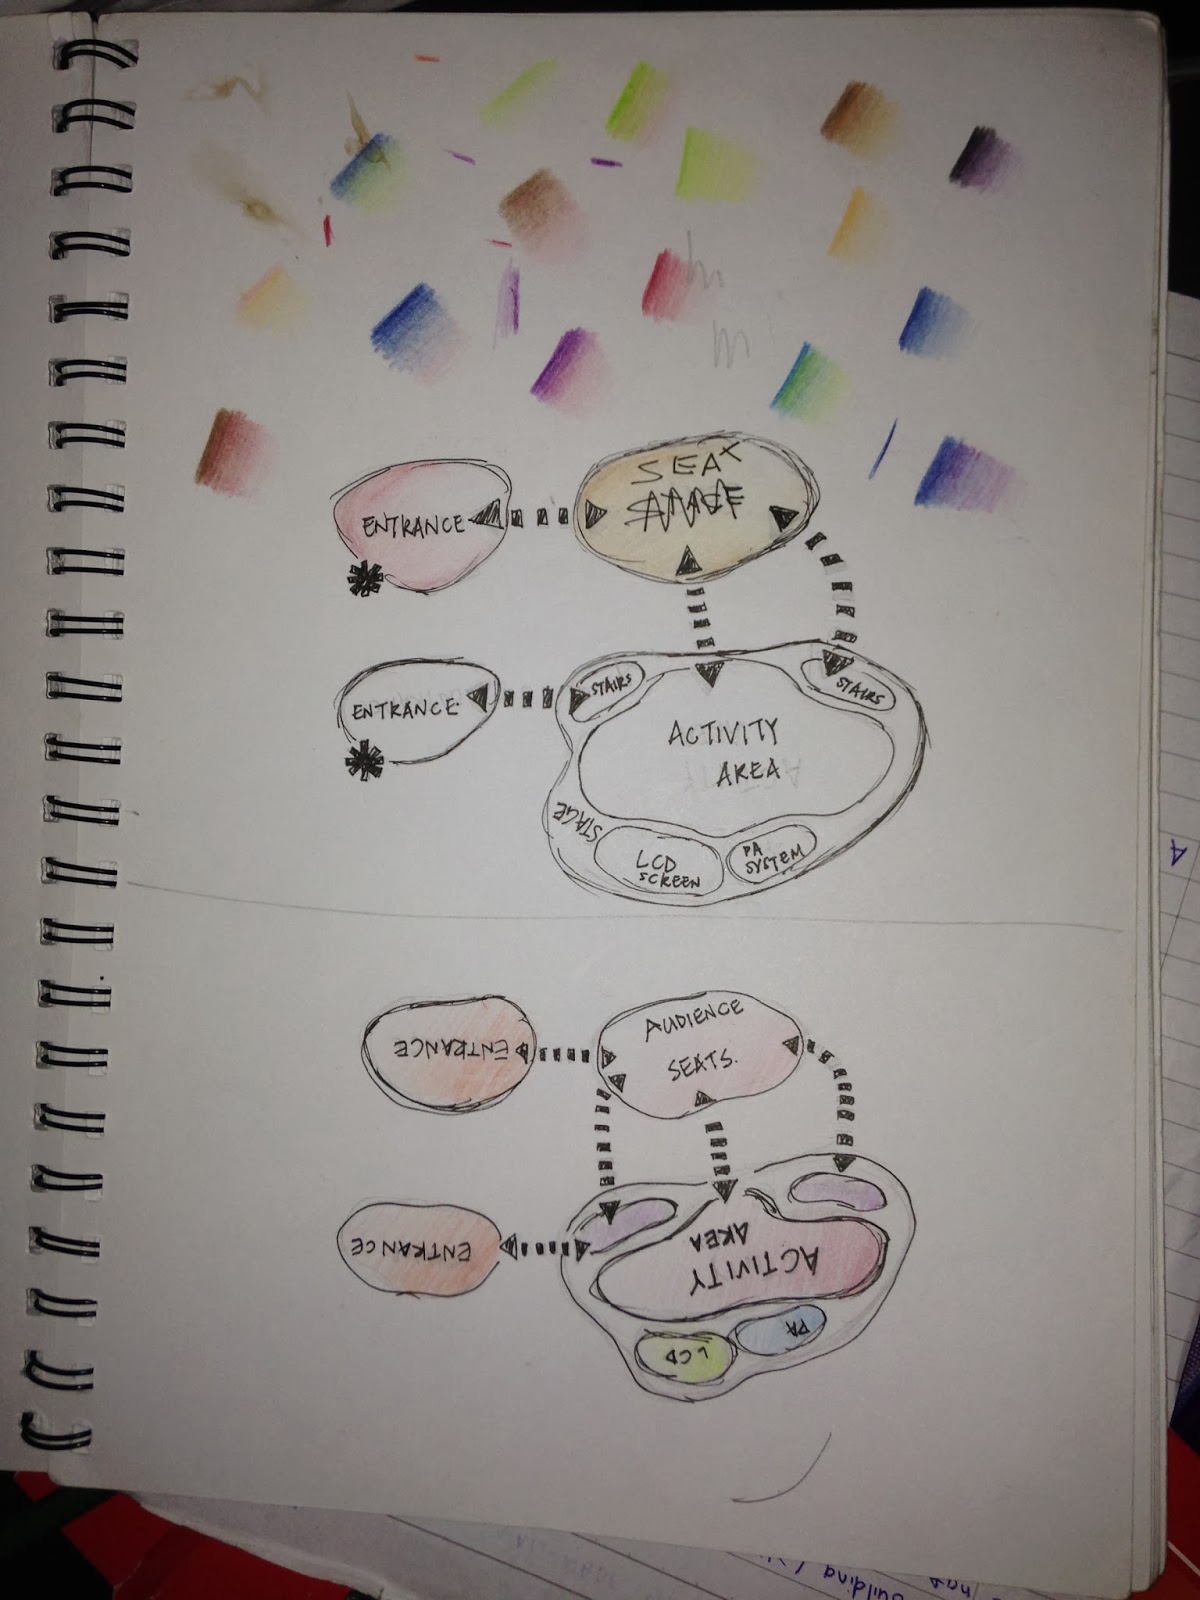 SEAT
ENTRANCE
ENTRANCE.
STAIRS
STAIRS
ACTIVITY
AREA
STAGE
LCD
SCREEN
PA
SYSTEM
AUDIENCE
SEATS.
ENTRANCE
ENTRANCE
ACTIVITY
AREA
LCD
PA
A
Building